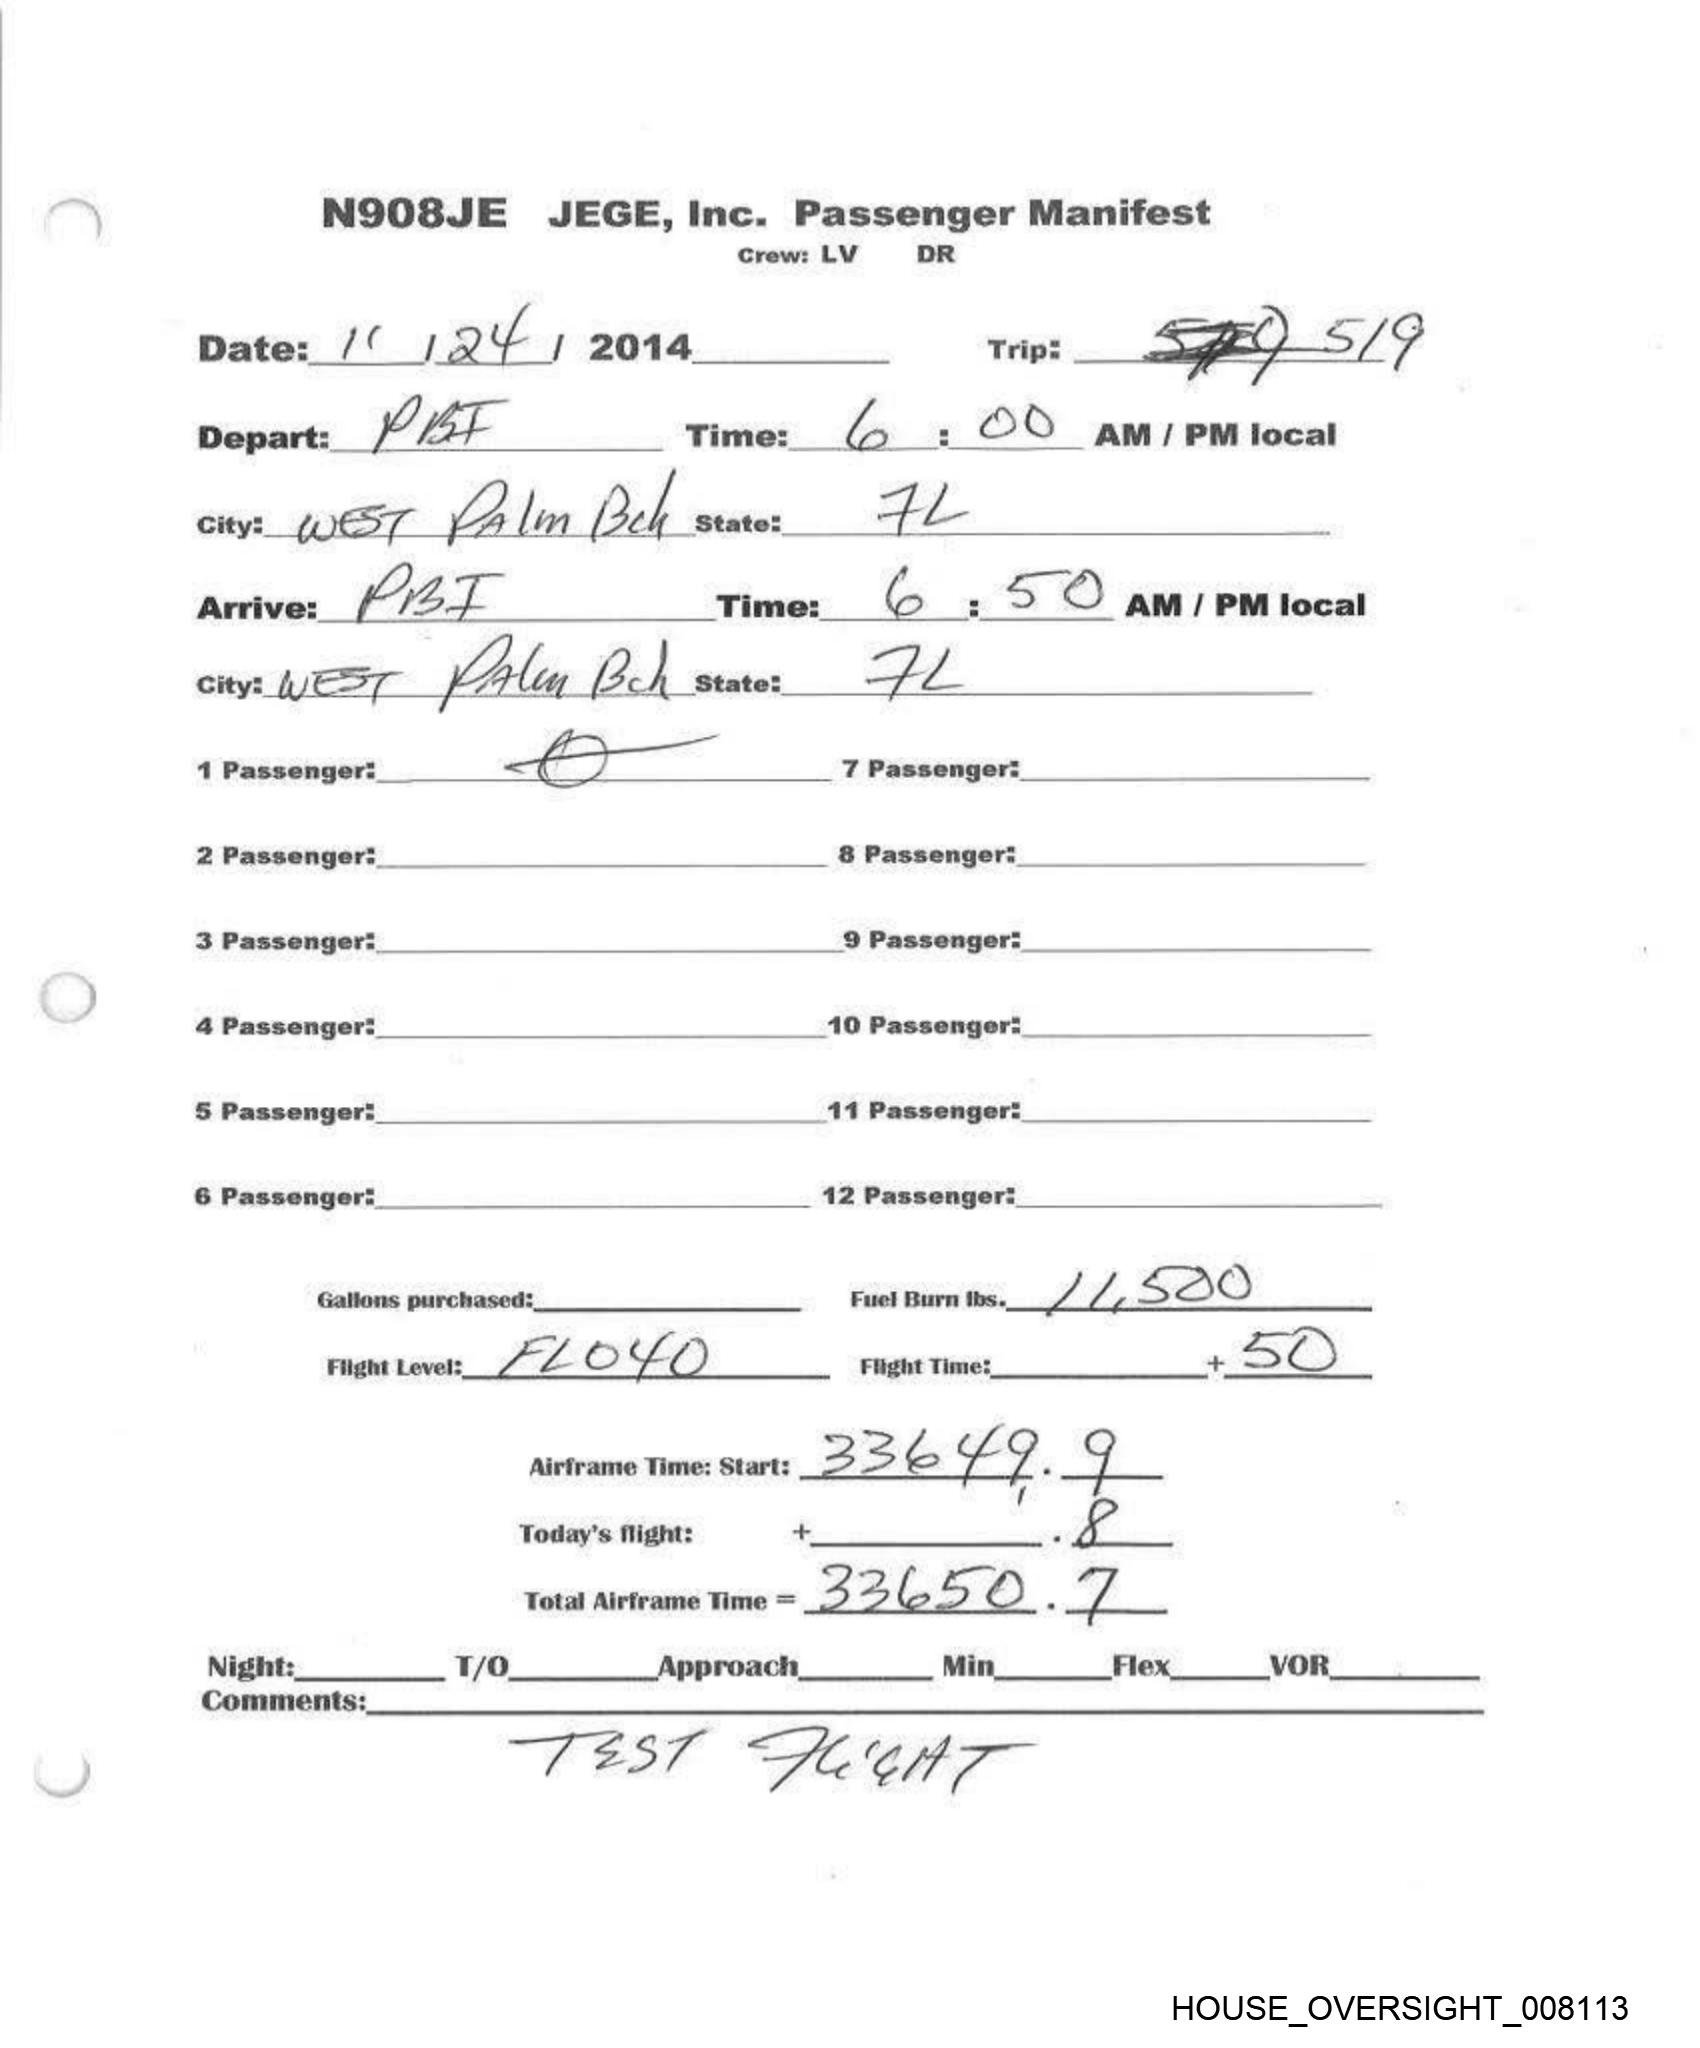 N908JE JEGE, Inc. Passenger Manifest
Crew: LV DR
Date: 11 / 24 / 2014 Trip: 519
Depart: PBI Time: 6 : 00 AM / PM local
City: WEST Palm Bch State: FL
Arrive: PBI Time: 6 : 50 AM / PM local
City: WEST Palm Bch State: FL
1 Passenger: 7 Passenger:
2 Passenger: 8 Passenger:
3 Passenger: 9 Passenger:
4 Passenger: 10 Passenger:
5 Passenger: 11 Passenger:
6 Passenger: 12 Passenger:
Gallons purchased: Fuel Burn lbs. 11,500
Flight Level: FL040 Flight Time: + 50
Airframe Time: Start: 33649 . 9
Today's flight: + . 8
Total Airframe Time = 33650 . 7
Night: T/O Approach Min Flex VOR
Comments:
TEST FLIGHT
HOUSE_OVERSIGHT_008113